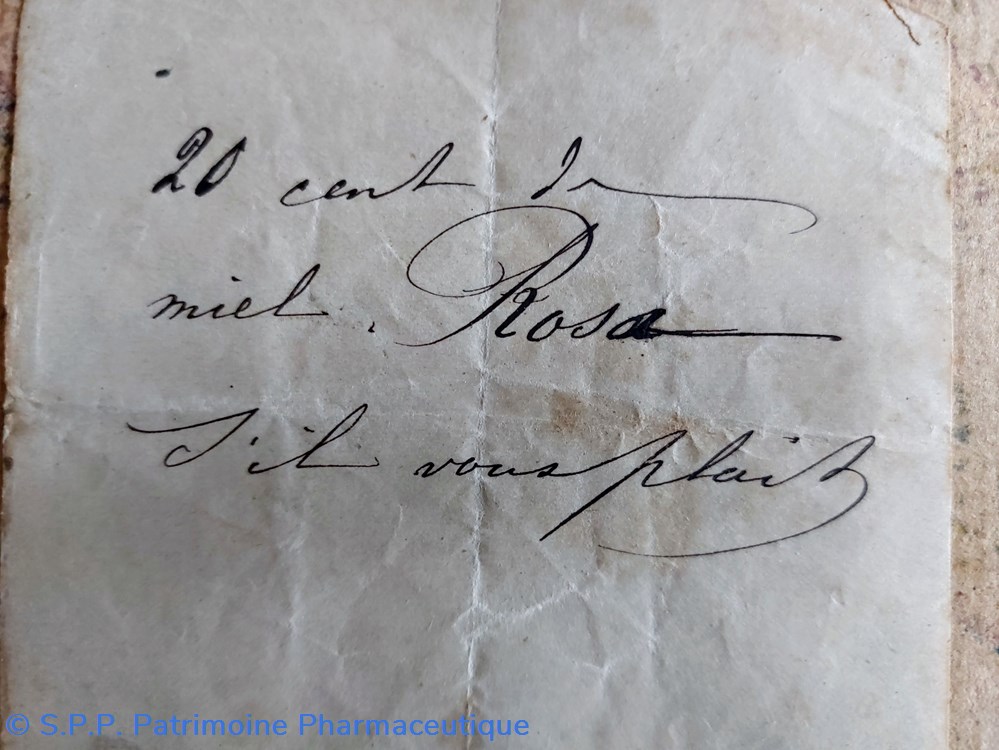 20 cent de
miel Rosa
S'il vous plait
© S.P.P. Patrimoine Pharmaceutique